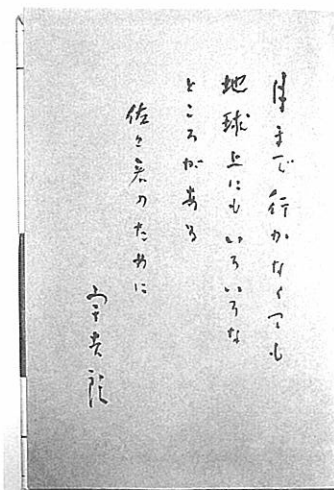 月まで行かなくても
地球上にもいろいろな
ところがある
佐々君のために